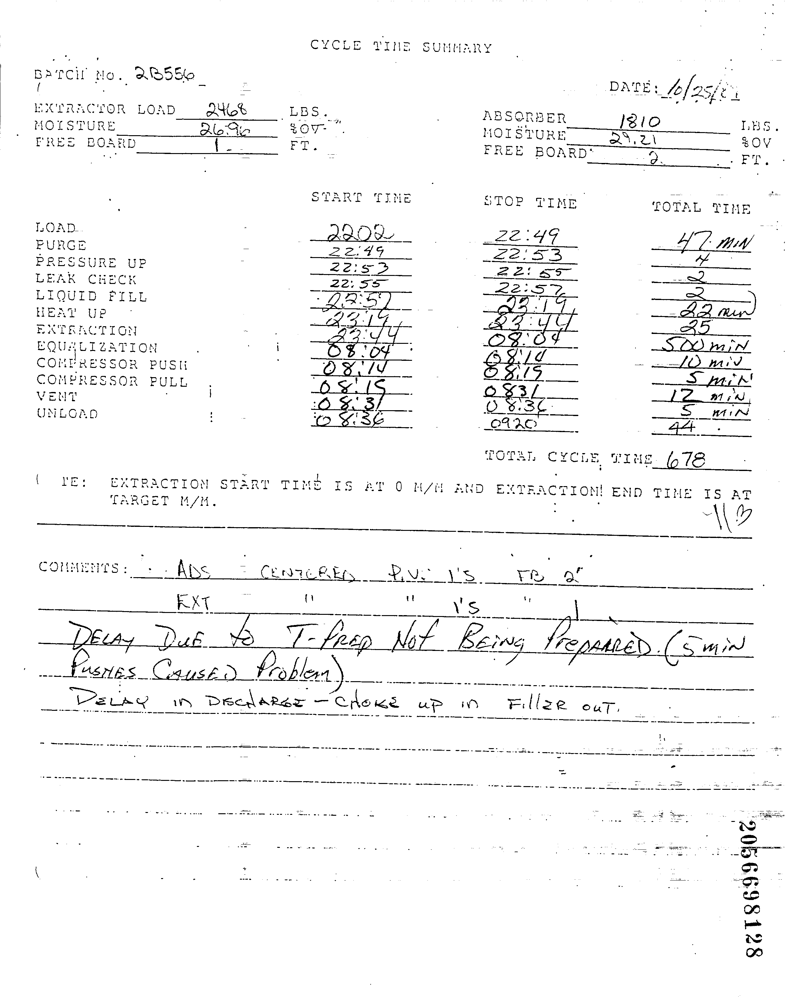 CYCLE TIME SUMMARY
BATCH No. 2B556
DATE: 10/25/
EXTRACTOR LOAD 2468 LBS.
MOISTURE 26.96 %OV
FREE BOARD 1 FT.
ABSORBER 1810 LBS.
MOISTURE 29.21 %OV
FREE BOARD 2 FT.
START TIME STOP TIME TOTAL TIME
LOAD 2202 22:49 47 MIN
PURGE 22:49 22:53 4
PRESSURE UP 22:53 22:55 2
LEAK CHECK 22:55 22:57 2
LIQUID FILL 22:57 23:19 22 min
HEAT UP 23:19 23:44 25
EXTRACTION 23:44 08:04 500 MIN
EQUALIZATION 08:04 08:14 10 MIN
COMPRESSOR PUSH 08:14 08:19 5 MIN
COMPRESSOR PULL 08:19 0831 12 MIN
VENT 08:31 08:36 5 MIN
UNLOAD 08:36 0920 44
TOTAL CYCLE TIME 678
TE: EXTRACTION START TIME IS AT 0 M/M AND EXTRACTION END TIME IS AT
TARGET M/M.
COMMENTS: ADS - CENTERED P.V. 1'S FB 2'
EXT - " " 1'S " 1
DELAY DUE to T-PREP NOT BEING PREPARRED. (5 MIN
PUSHES CAUSED Problem)
DELAY IN DISCHARGE - CHOKE UP IN FILLER OUT.
2056698128